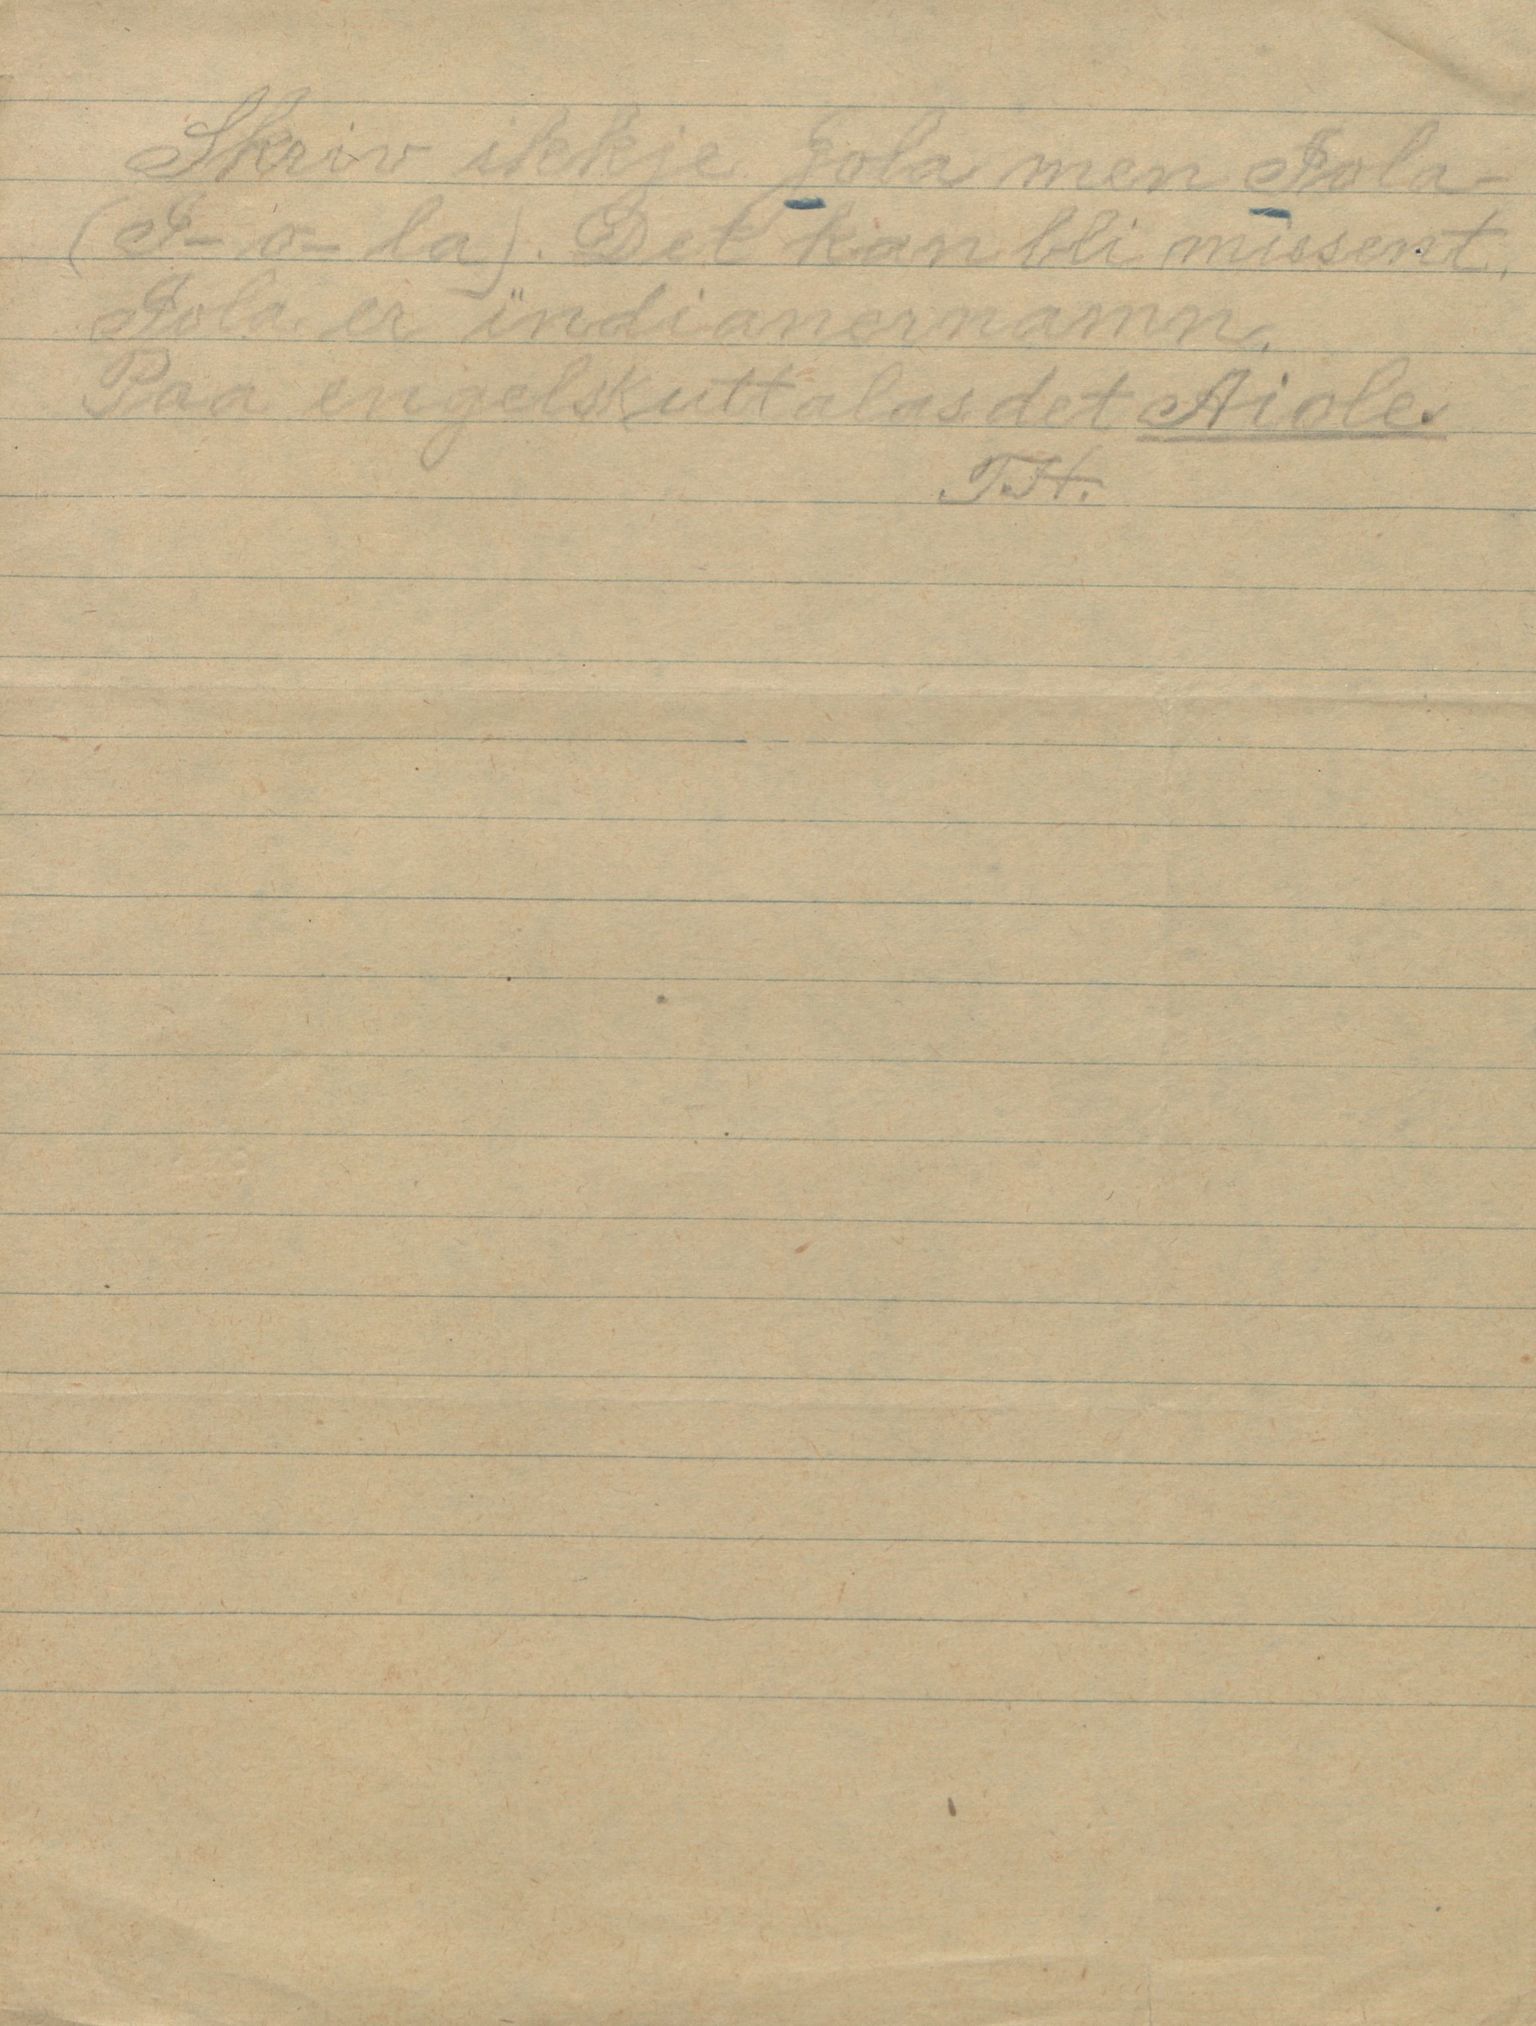 Skriv ikkje Jola men Iola
(I-o-la). Det kan bli missent.
Iola er indianernamn.
Paa engelsk uttalas det Aiole.
T.H.